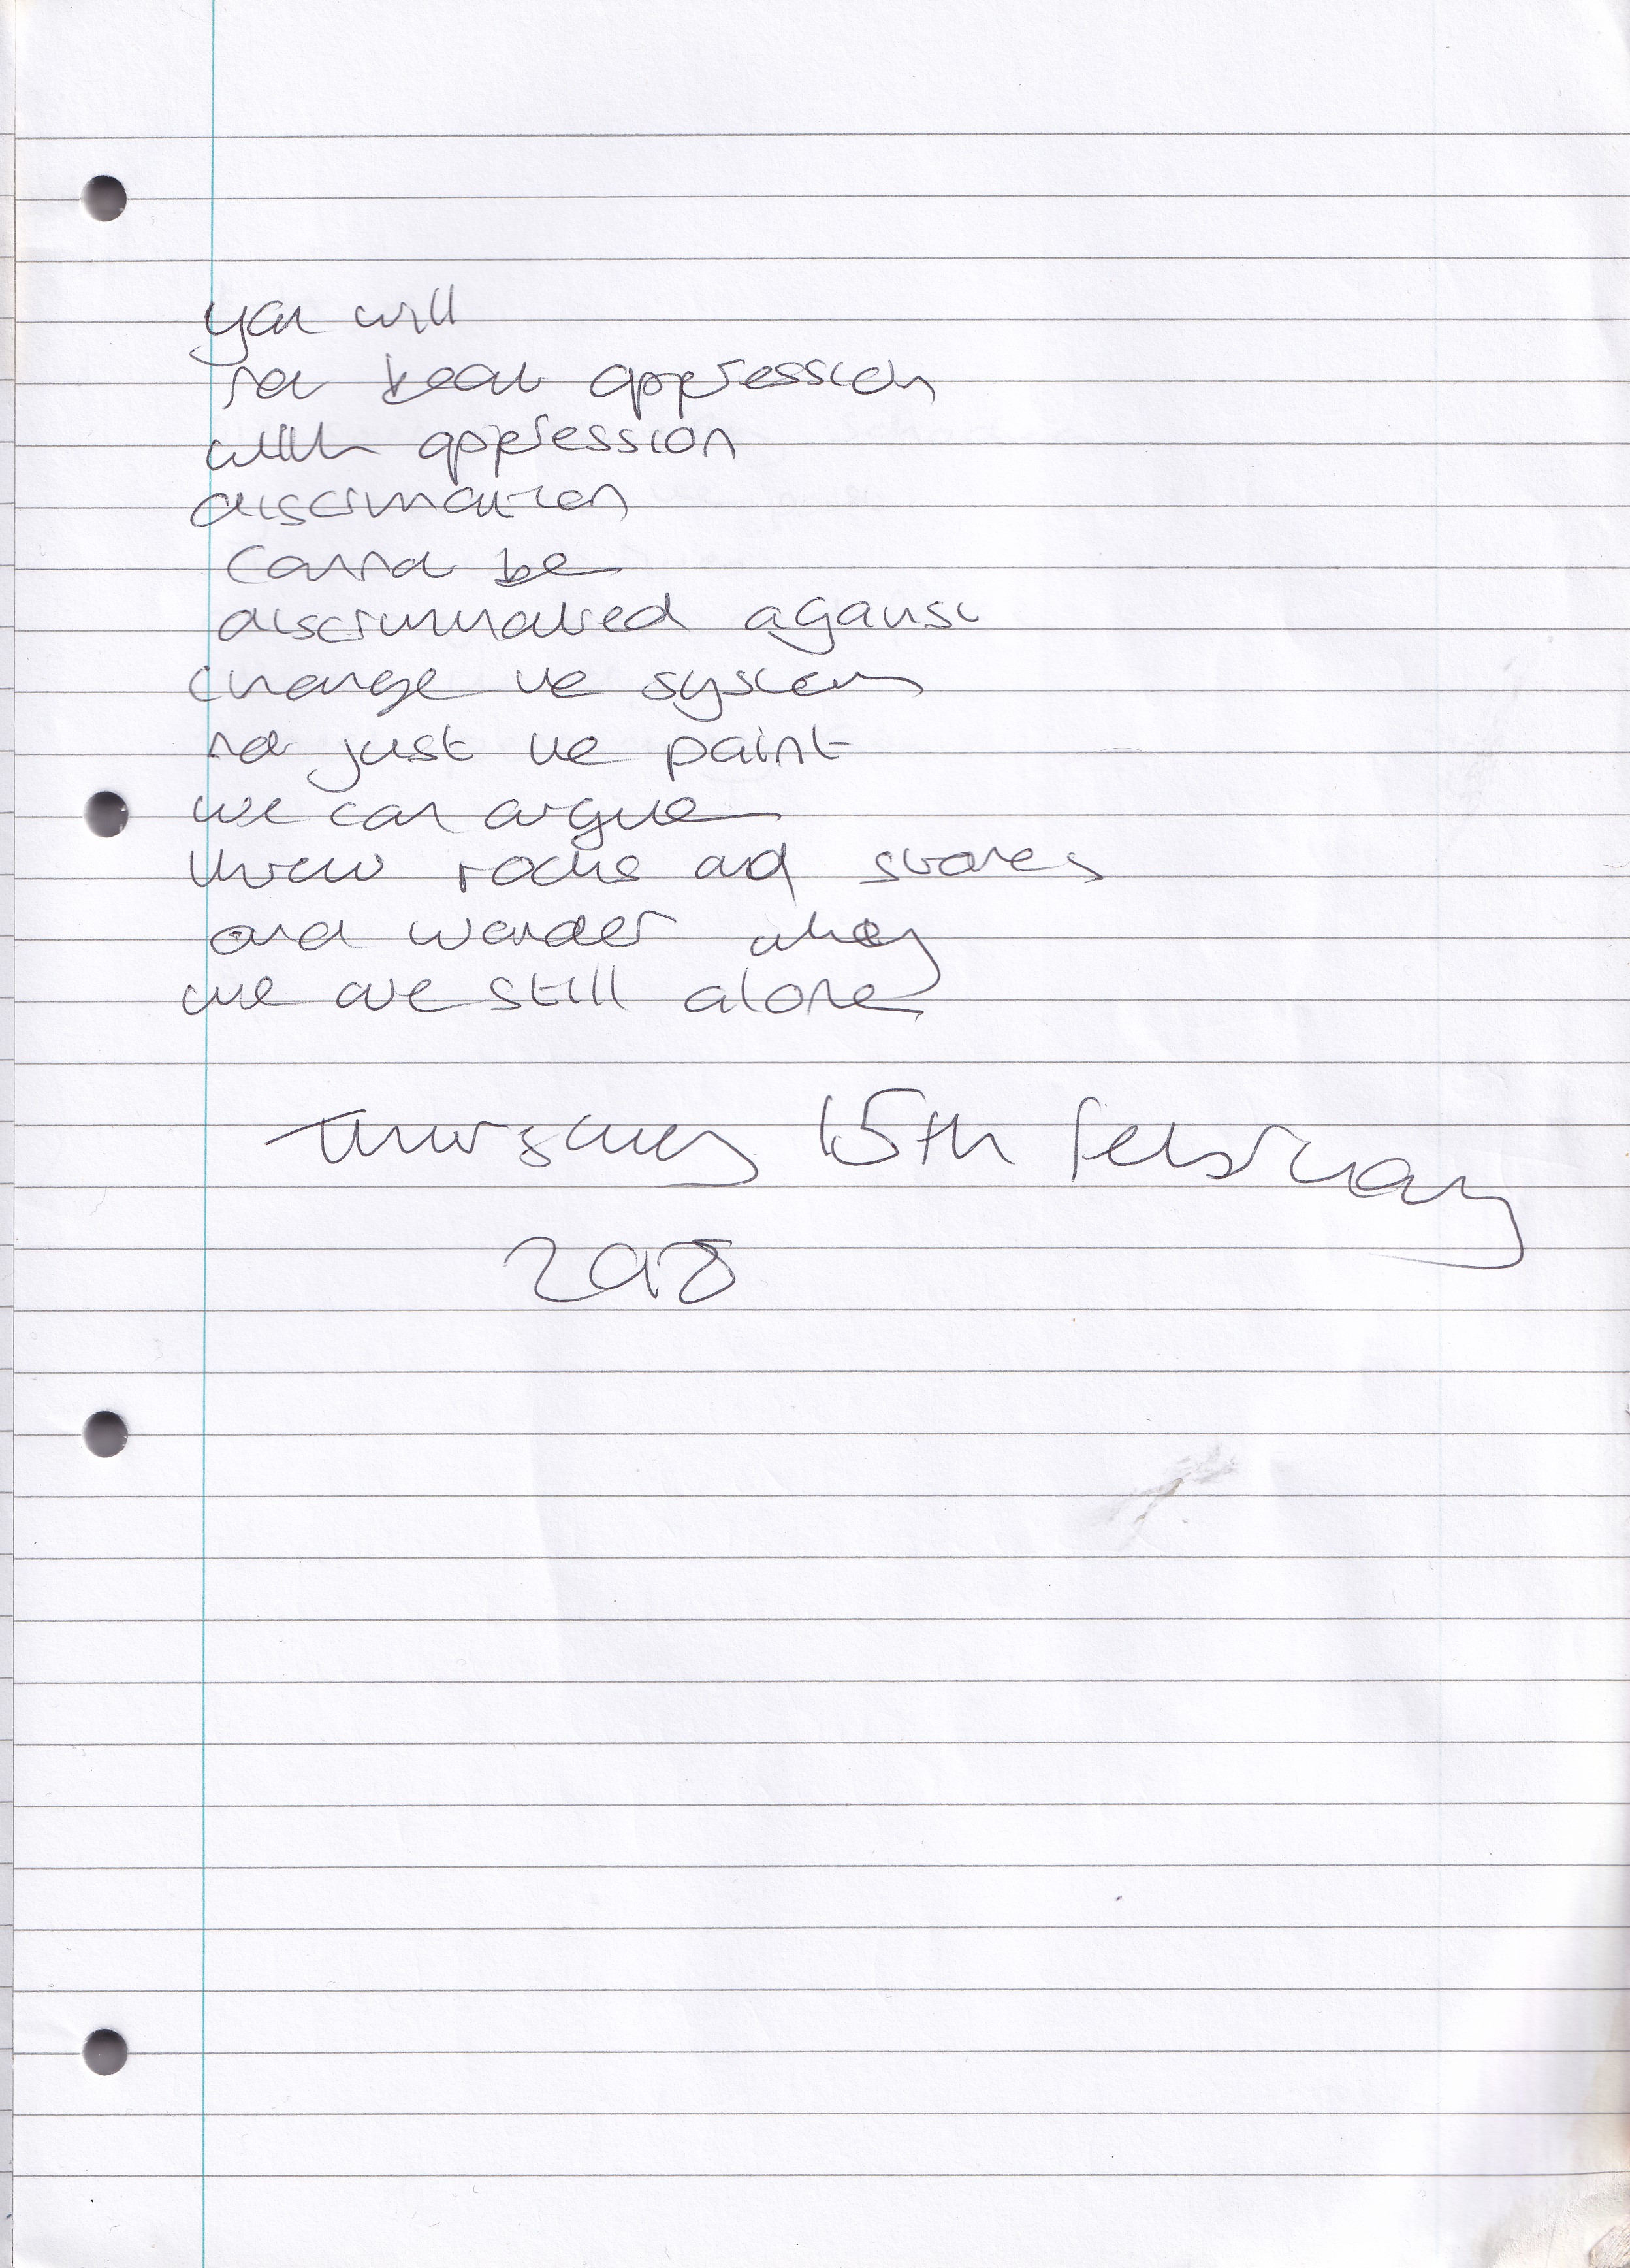 you will
not beat oppression
with oppression
discrimation
cannot be
discriminated against
change the system
not just the paint
we can argue
throw rocks and stones
and wonder why
we are still alone
Thursday 15th February
2018